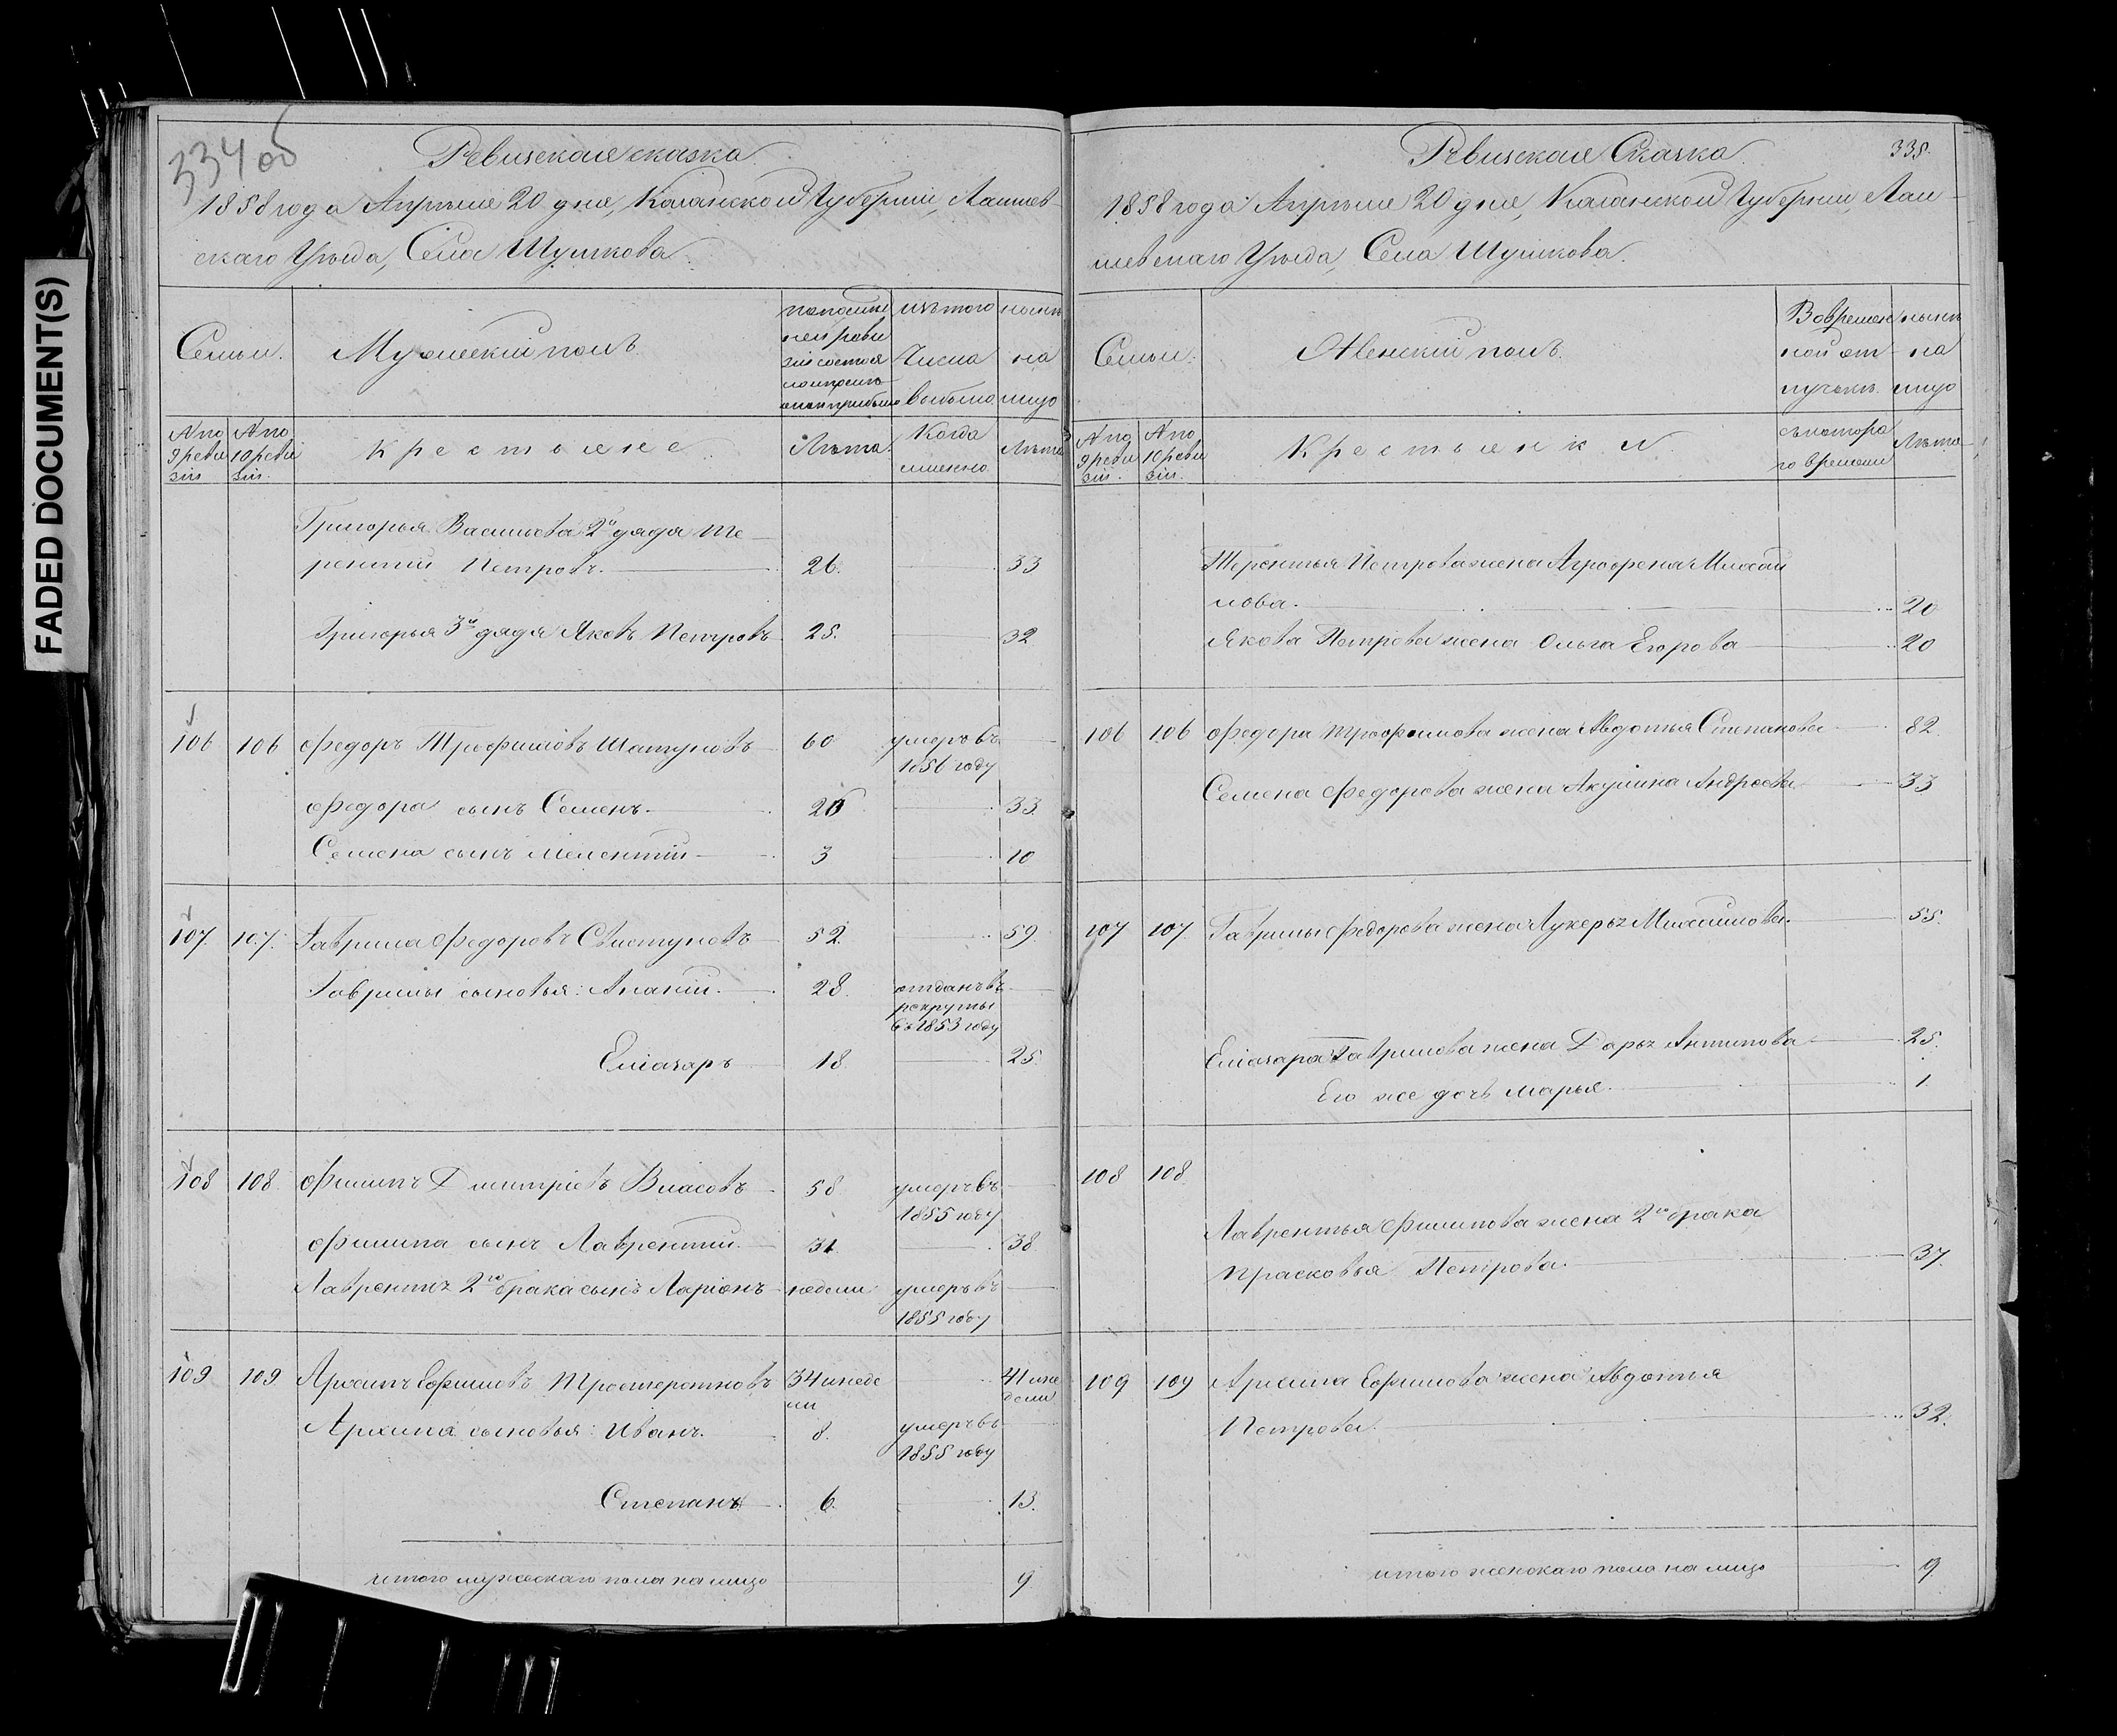 FADED DOCUMENT(S)
334 об
Ревизская сказка
1858 года Апрѣля 20 дня, Казанской Губерніи, Лаишев-
скаго Уѣзда, Села Шушкова.
Семьи.
Мужескій полъ
по послѣд
ней реви
зіи состоя
ло и послѣ
оной прибыло
изъ того
числа
выбыло
нынѣ
на
лицо
№ по
9 реви
зіи
№ по
10 реви
зіи.
Крестьяне
Лѣта.
Когда
именно
Лѣта
Григорья Васильева 2й дядя Те-
рентій Петровъ. 26. 33
Григорья 3й дядя Яковъ Петровъ 25. 32
106 106 Федоръ Трофимовъ Шатуновъ 60 умеръ въ
1856 году
Федора сынъ Семенъ. 26 33.
Семена сынъ Мелентій 3 10
107. 107. Гаврила Федоровъ Свистуновъ 52. 59.
Гаврилы сыновья: Ананій. 28. отданъ въ
рекруты
въ 1853 году
Еліазаръ 18. 25.
108 108. Филипъ Дмитріевъ Власовъ 58 умеръ въ
1855 году
Филипа сынъ Лаврентій. 31. 38
Лаврентья 2го брака сынъ Ларіонъ недели умеръ въ
1855 году
109 109 Архипъ Ефимовъ 34 и неде
ли
41 и не
дели
Архипа сыновья: Иванъ. 8. умеръ въ
1855 году
Степанъ 6. 13.
итого мужескаго пола на лицо 9
Ревизская Сказка. 335.
1858 года Апрѣля 20 дня, Казанской Губерніи, Лаи-
шевскаго Уѣзда, Села Шушкова.
Семьи.
Женскій полъ.
Во времен
ной от-
лучкѣ.
нынѣ
на
лицо
№ по
9 реви
зіи.
№ по
10 реви
зіи.
Крестьянки
съ котора
го времени
Лѣта
Терентья Петрова жена Аграфена Михай
лова. 20
Якова Петрова жена Ольга Егорова 20
106 106 Федора Трофимова жена Авдотья Степанова 82.
Семена Федорова жена Акулина Андреева 33
107 107. Гаврилы Федорова жена Лукерья Михайлова. 55.
Еліазара Гаврилова жена Дарья Антипова 25.
Его же дочь Марья. 1.
108 108
Лаврентья Филипова жена 2го брака
Прасковья Петрова. 37.
109 109 Архипа Ефимова жена Авдотья
Петрова. 32.
итого женскаго пола на лицо 9.